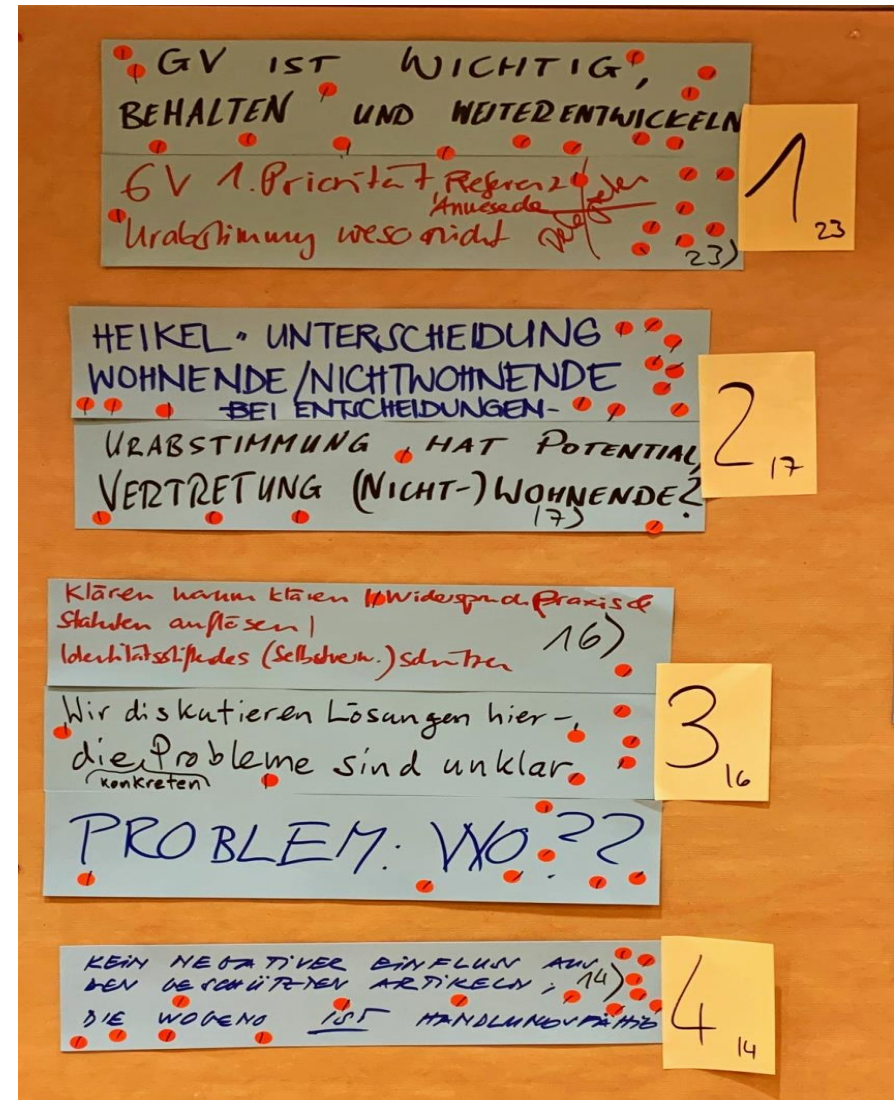 GV IST WICHTIG,
BEHALTEN UND WEITERENTWICKELN
GV 1. Priorität, Referenz
Anwesende
Urabstimmung wieso nicht
23)
1
23
HEIKEL: UNTERSCHEIDUNG
WOHNENDE/NICHTWOHNENDE
-BEI ENTSCHEIDUNGEN-
URABSTIMMUNG, HAT POTENTIAL,
VERTRETUNG (NICHT-)WOHNENDE?
17)
2
17
Klären warum klären Widerspruch Praxis &
Statuten auflösen |
Identitätsstiftendes (Selbstverw.) schützen
16)
Wir diskutieren Lösungen hier -
die Probleme sind unklar
(konkreten)
3
16
PROBLEM: WO??
KEIN NEGATIVER EINFLUSS AUS
DEN GESCHÜTZTEN ARTIKELN;
14)
DIE WOGENO IST HANDLUNGSFÄHIG
4
14